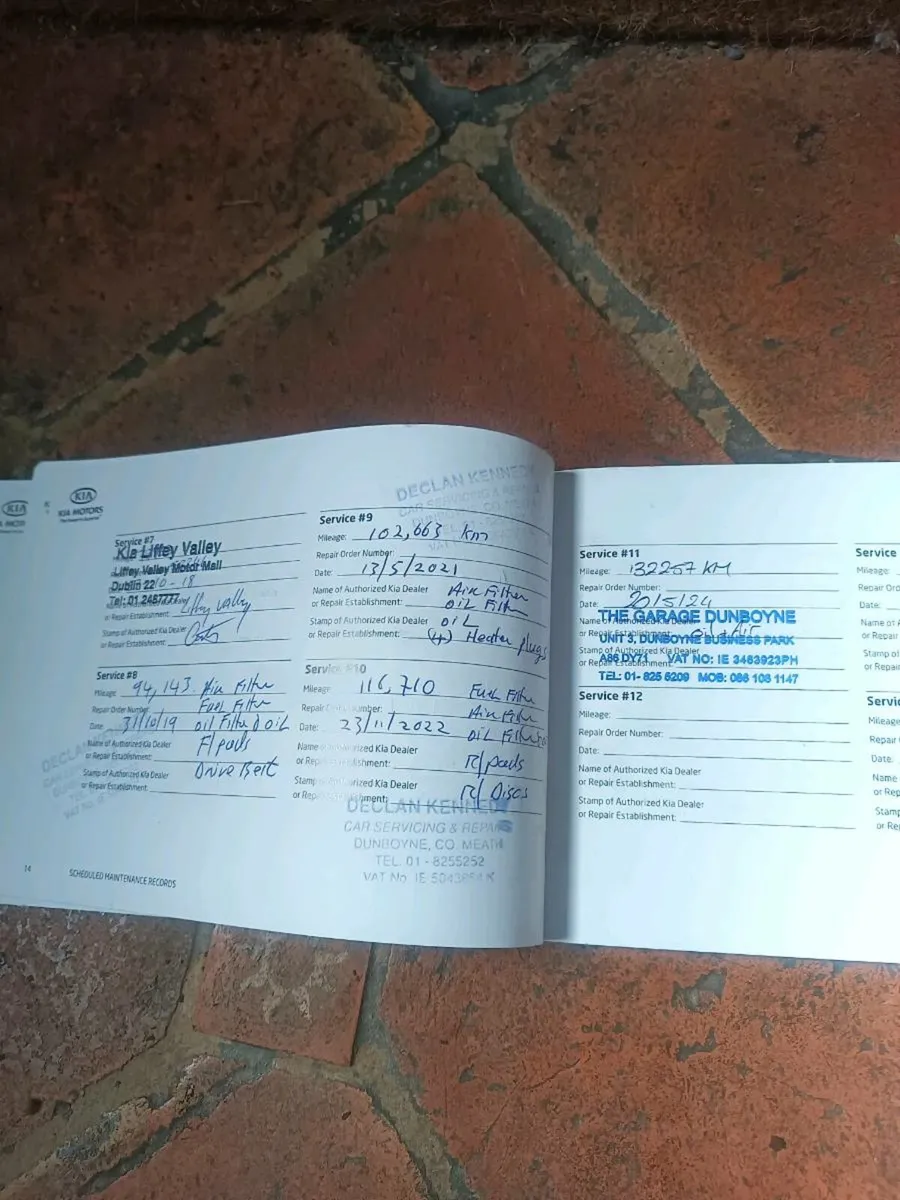 KIA
KIA MOTORS
Service #7
Kia Liffey Valley
Liffey Valley Motor Mall
Dublin 22
10-18
Tel: 01 2457777
Liffey Valley
or Repair Establishment:
Stamp of Authorized Kia Dealer
or Repair Establishment:
Service #8
Mileage: 94,143. Air Filter
Repair Order Number: Fuel Filter
Date: 31/10/19 Oil Filter & Oil
Name of Authorized Kia Dealer F/pads
or Repair Establishment:
Stamp of Authorized Kia Dealer Drive Belt
or Repair Establishment:
14
SCHEDULED MAINTENANCE RECORDS
DECLAN KENNEDY
CAR SERVICING &
Service #9
Mileage: 102,663 km
Repair Order Number:
Date: 13/5/2021
Name of Authorized Kia Dealer Air Filter
or Repair Establishment: OIL Filter
Stamp of Authorized Kia Dealer OIL
or Repair Establishment: (4) Heater plugs
Service #10
Mileage 116,710 Fuel Filter
Repair Number: Air Filter
Date: 23/11/2022 OIL Filter
Name Authorized Kia Dealer
or Repair Establishment: R/pads
Stamp Authorized Kia Dealer
or Repair Establishment: R/Discs
DECLAN KENNEDY
CAR SERVICING & REPAIRS
DUNBOYNE, CO. MEATH
TEL. 01 - 8255252
VAT No. IE
Service #11
Mileage: 132257 KM
Repair Order Number:
Date: 20/5/24
THE GARAGE DUNBOYNE
or Repair Establishment: oil + Air
UNIT 3, DUNBOYNE BUSINESS PARK
Stamp of Authorized Kia Dealer
A86 DY71 VAT NO: IE 3463923PH
or Repair Establishment:
TEL: 01- 825 5209 MOB: 086 108 1147
Service #12
Mileage:
Repair Order Number:
Date:
Name of Authorized Kia Dealer
or Repair Establishment:
Stamp of Authorized Kia Dealer
or Repair Establishment:
Service
Mileage:
Date: